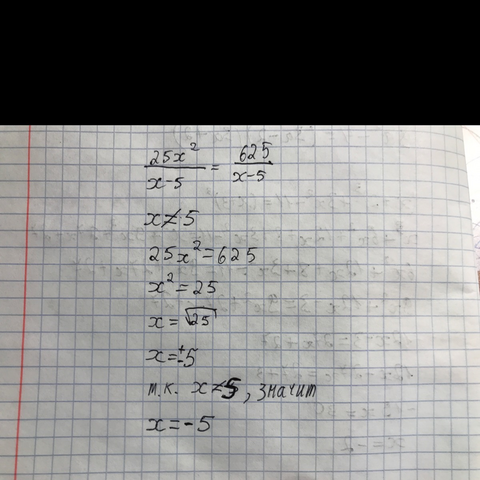 25x²/x-5 = 625/x-5
x≠5
25x²=625
x²=25
x=√25
x=±5
т.к. x≠5, значит
x=-5